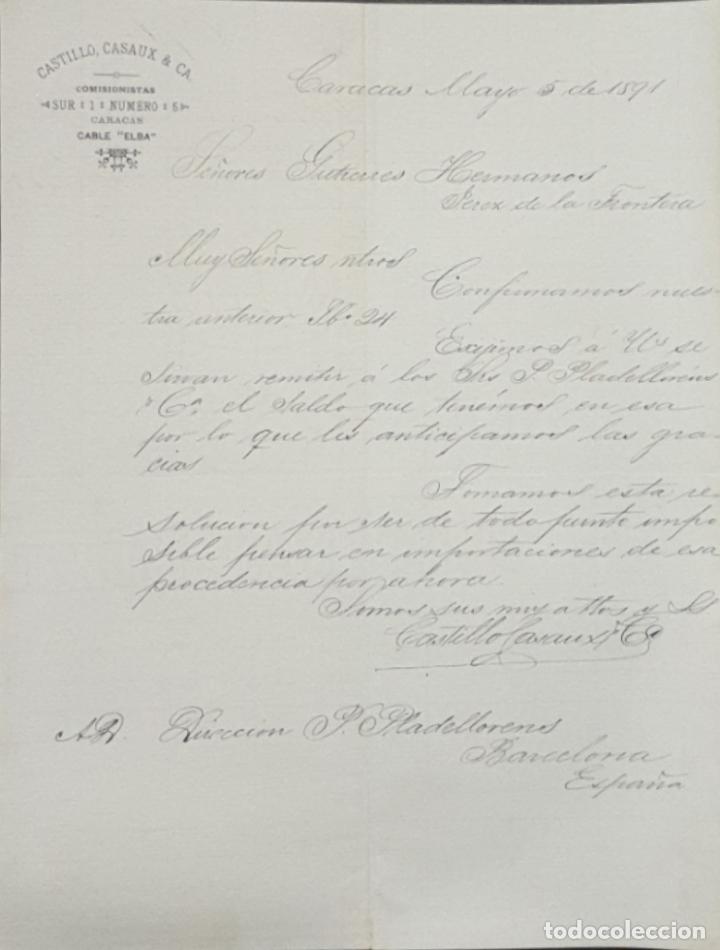 CASTILLO, CASAUX & CA.
COMISIONISTAS
SUR 1 NUMERO 5
CARACAS
CABLE "ELBA"
Caracas Mayo 5 de 1891
Señores Gutierres Hermanos
Jerez de la Frontera
Muy Señores ntros
Confirmamos nues-
tra anterior Fb.o 24
Exijimos á Us se
sirvan remitir á los Srs P. Pladelloréns
y Ca. el saldo que tenémos en esa
por lo que les anticipamos las gra-
cias
Tomamos esta re
solucion por ser de todo punto impo
sible pensar en importaciones de esa
procedencia por ahora.
Somos sus muy attos y SS
Castillo Casaux y Ca
AD. Direccion P. Pladellorens
Barcelona
España
todocoleccion